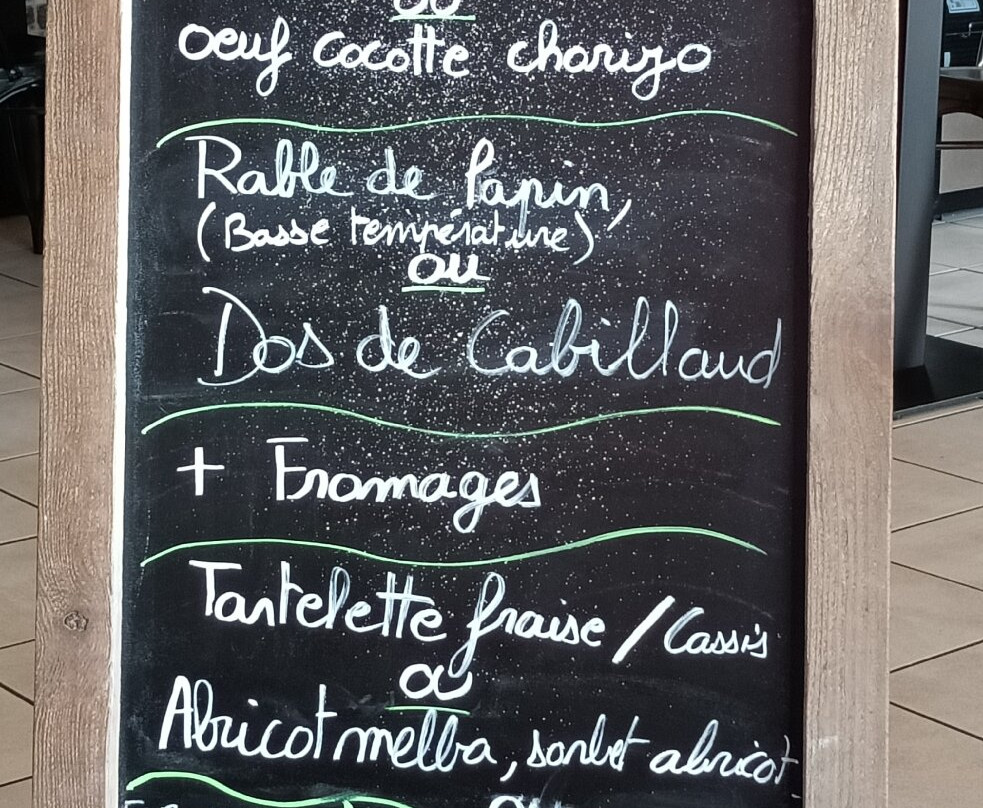 ou
oeuf cocotte chorizo
Rable de lapin,
(Basse température)
ou
Dos de Cabillaud
+ Fromages
Tartelette fraise / Cassis
ou
Abricot melba, sorbet abricot
ou